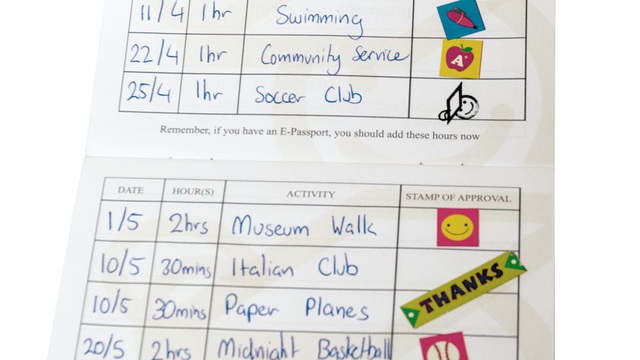 11/4 1hr Swimming
22/4 1hr Community Service A+
25/4 1hr Soccer Club
Remember, if you have an E-Passport, you should add these hours now
DATE HOUR(S) ACTIVITY STAMP OF APPROVAL
1/5 2hrs Museum Walk
10/5 30mins Italian Club
10/5 30mins Paper Planes THANKS
20/5 2hrs Midnight Basketball